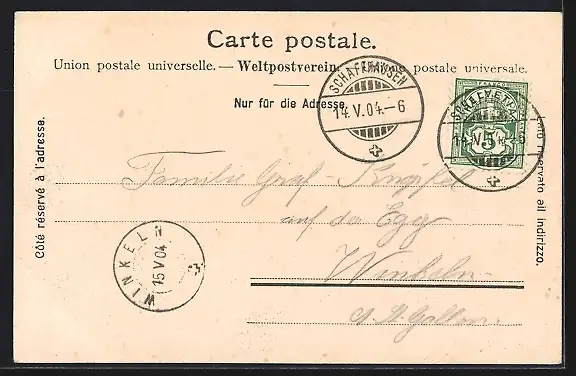 Carte postale.
Union postale universelle. — Weltpostverein. postale universale.
Nur für die Adresse.
SCHAFFHAUSEN
14.V.04.–6
SCHAFFHAU
14.V.
5
Côté réservé à l'adresse.
riservato all indirizzo.
Familie Graf-
auf der Egg
Winkeln
St. Gallen.
WINKELN
15 V 04